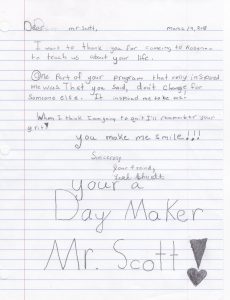 Dear mr Scott,
I want to thank you for comeing to
to teach us about your life.
One Part of your program that realy inspired
me was That you said, don't Change for
Someone else. It inspired me to
When I think I am going to quit I'll remember your
grit
you make me smile!!!
Sincerely
your friend,
your a
Day Maker
Mr. Scott!